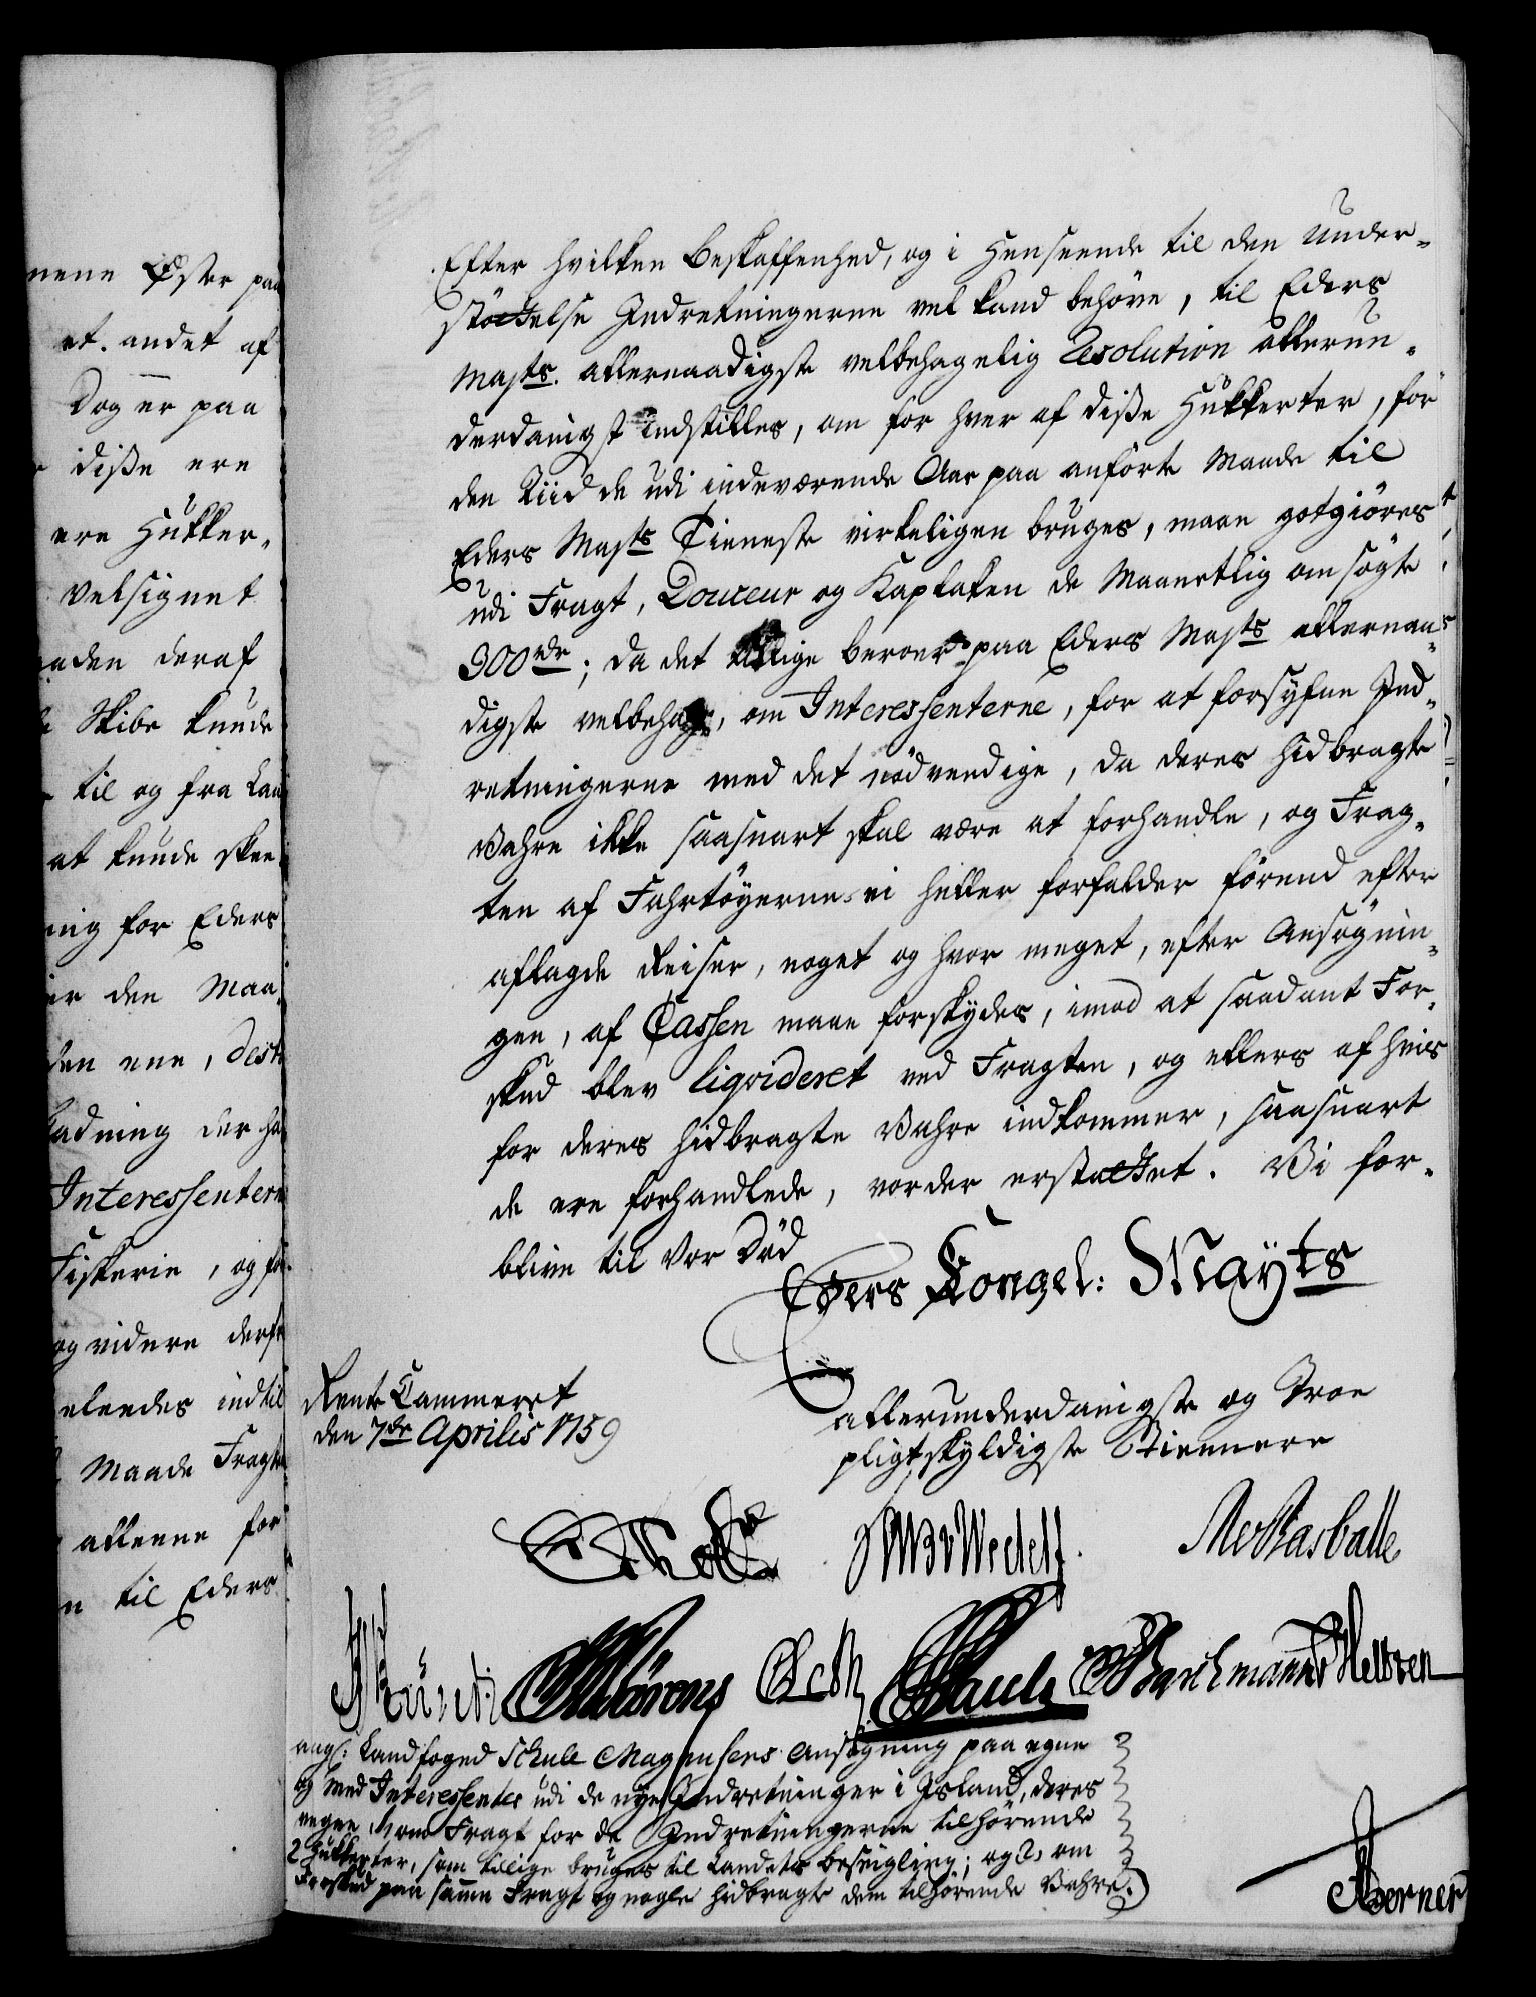 nene Øster paa
et andet af
Dog er paa
disse ere
ere Hukker-
velsignet
aaden deraf
Skibe kunde
til og fra Lan
at kunde skee
ing for Eders
er den Maa
den ene, dest
ladning der ha
Interessentern
Fiskerie, og
og videre
indtil
Maade Fragt
alleene for
n til Eders
Efter hvilken Beskaffenhed, og i Henseende til den Under-
støttelse Indretningerne vel kand behöve, til Eders
Majts. allernaadigste velbehagelig Resolution allerun-
derdanigst indstilles, om for hver af disse Hukkerter, for
den Tiid de udi indeværende Aar paa anförte Maade til
Eders Majts Tieneste virkeligen bruges, maae gotgiöres
udi Fragt, Douceur og Kaplaken de Maanetlig omsögte
300rdr; da det tillige beroer paa Eders Majts allernaa-
digste velbehag, om Interessenterne, for at forsyfne Ind-
retningerne med det nödvendige, da deres hidbragte
Vahre ikke saasnart skal være at forhandle, og Frag-
ten af Fahrtöyerne ei heller forfalder förend efter
aflagde Reiser, noget og hvor meget, efter Ansögnin-
gen, af Cassen maae forskydes, imod at saadant For-
skud blev liqvideret ved Fragten, og ellers af hvis
for deres hidbragte Vahre indkommer, saasnart
de ere forhandlede, vorder erstattet. Vi for-
blive til vor Död
Eders Kongel: Mayts
Rente Cammeret
den 7de Aprilis 1759
allerunderdanigste og Troe
pligtskyldigste Tiennere
Wedell
angl: Landfoged Schule Magnusens Ansögning paa egne
og Med Interessentes udi de nye Indretninger i Island, deres
vegne, om Fragt for de Indretningerne tilhörende
2 Hukkerter, som tillige bruges til Landets beseigling; og 2, om
Forskud paa samme Fragt og nogle hidbragte dem tilhörende Vahre.)